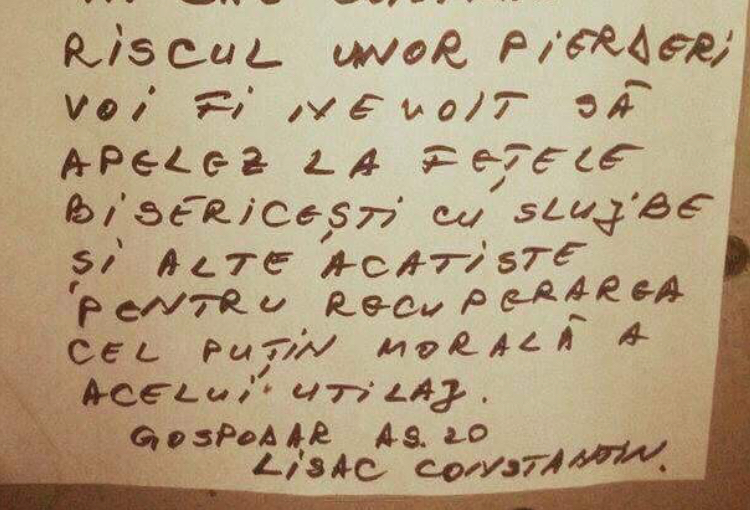 RISCUL UNOR PIERDERI
VOI FI NEVOIT SĂ
APELEZ LA FEȚELE
BISERICEȘTI CU SLUJBE
ȘI ALTE ACATISTE
PENTRU RECUPERAREA
CEL PUȚIN MORALĂ A
ACELUI UTILAJ.
GOSPODAR AS. 20
LISAC CONSTANTIN.